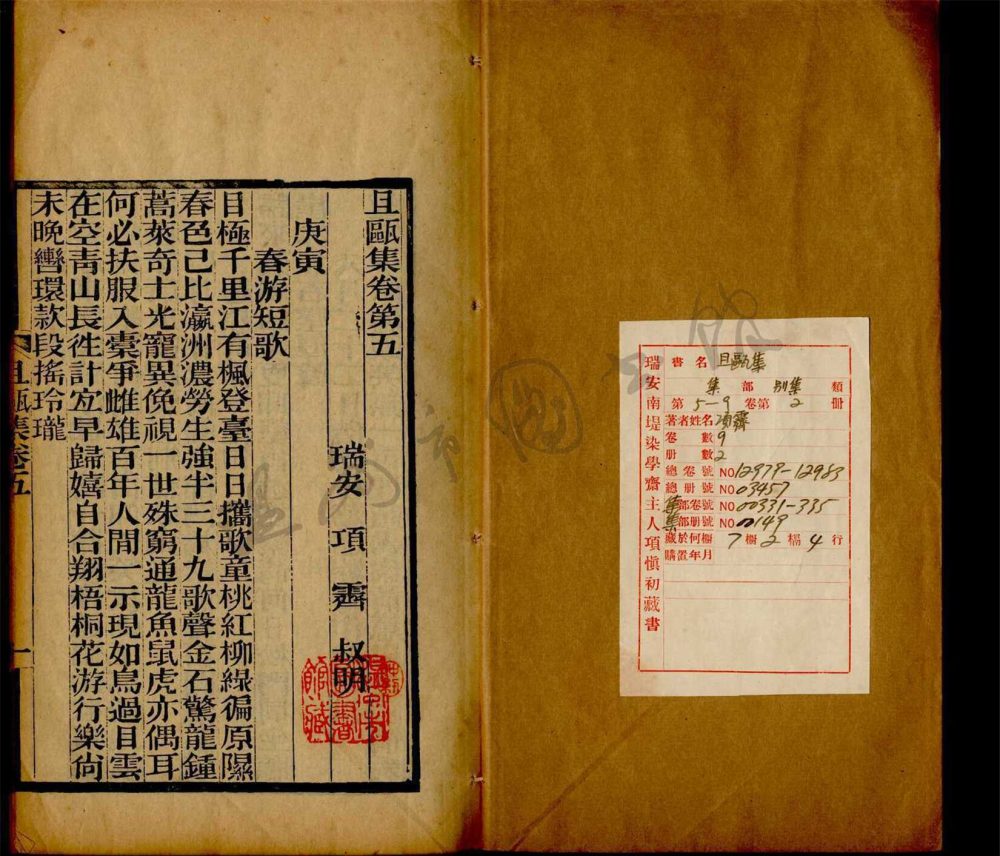 瑞安南堤染學齋主人項慎初藏書
書名 且甌集
集部 別集類
第5-9卷第2冊
著者姓名 項霽
卷數 9
冊數 2
總卷號 NO 12979-12983
總冊號 NO 03457
集部卷號 NO 00331-335
集部冊號 NO 0149
藏於何櫥 7櫥2櫊4行
購置年月
且甌集卷第五
瑞安 項霽 叔明
庚寅
春游短歌
目極千里江有楓登臺日日攜歌童桃紅柳綠徧原隰
春色已比瀛洲濃勞生強半三十九歌聲金石驚龍鍾
蒿萊奇士光寵異俛視一世殊窮通龍魚鼠虎亦偶耳
何必扶服入橐爭雌雄百年人間一示現如鳥過目雲
在空靑山長徃計宐早歸嬉自合翔梧桐花游行樂尙
未晚轡環款段搖玲瓏
且甌集卷五
一
溫州市圖書館藏
溫州市圖書館